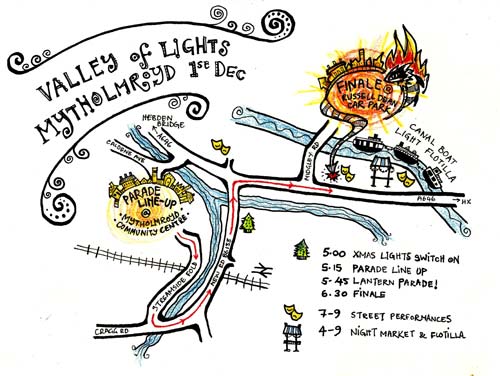 VALLEY of LIGHTS
MYTHOLMROYD 1ST DEC
FINALE @
RUSSELL DEAN
CAR PARK
HEBDEN
BRIDGE
A646
CALDENE AVE
MIDGLEY RD
CANAL BOAT
LIGHT FLOTILLA
A646
HX
PARADE
LINE-UP
@
MYTHOLMROYD
COMMUNITY CENTRE
NEW RD
STREAMSIDE FOLD
CRAGG RD
5.00 XMAS LIGHTS SWITCH ON
5.15 PARADE LINE UP
5-45 LANTERN PARADE!
6.30 FINALE
7-9 STREET PERFORMANCES
4-9 NIGHT MARKET & FLOTILLA